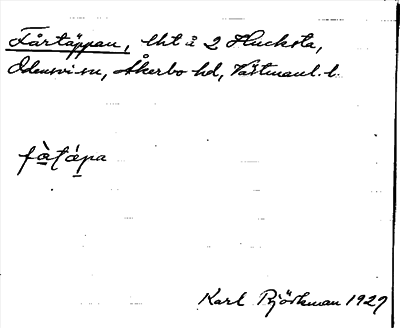 Fårtäppan, lht å 2 Hucksta,
Odensvi sn, Åkerbo hd, Västmanl. l.
fàtápa
Karl Björkman 1927